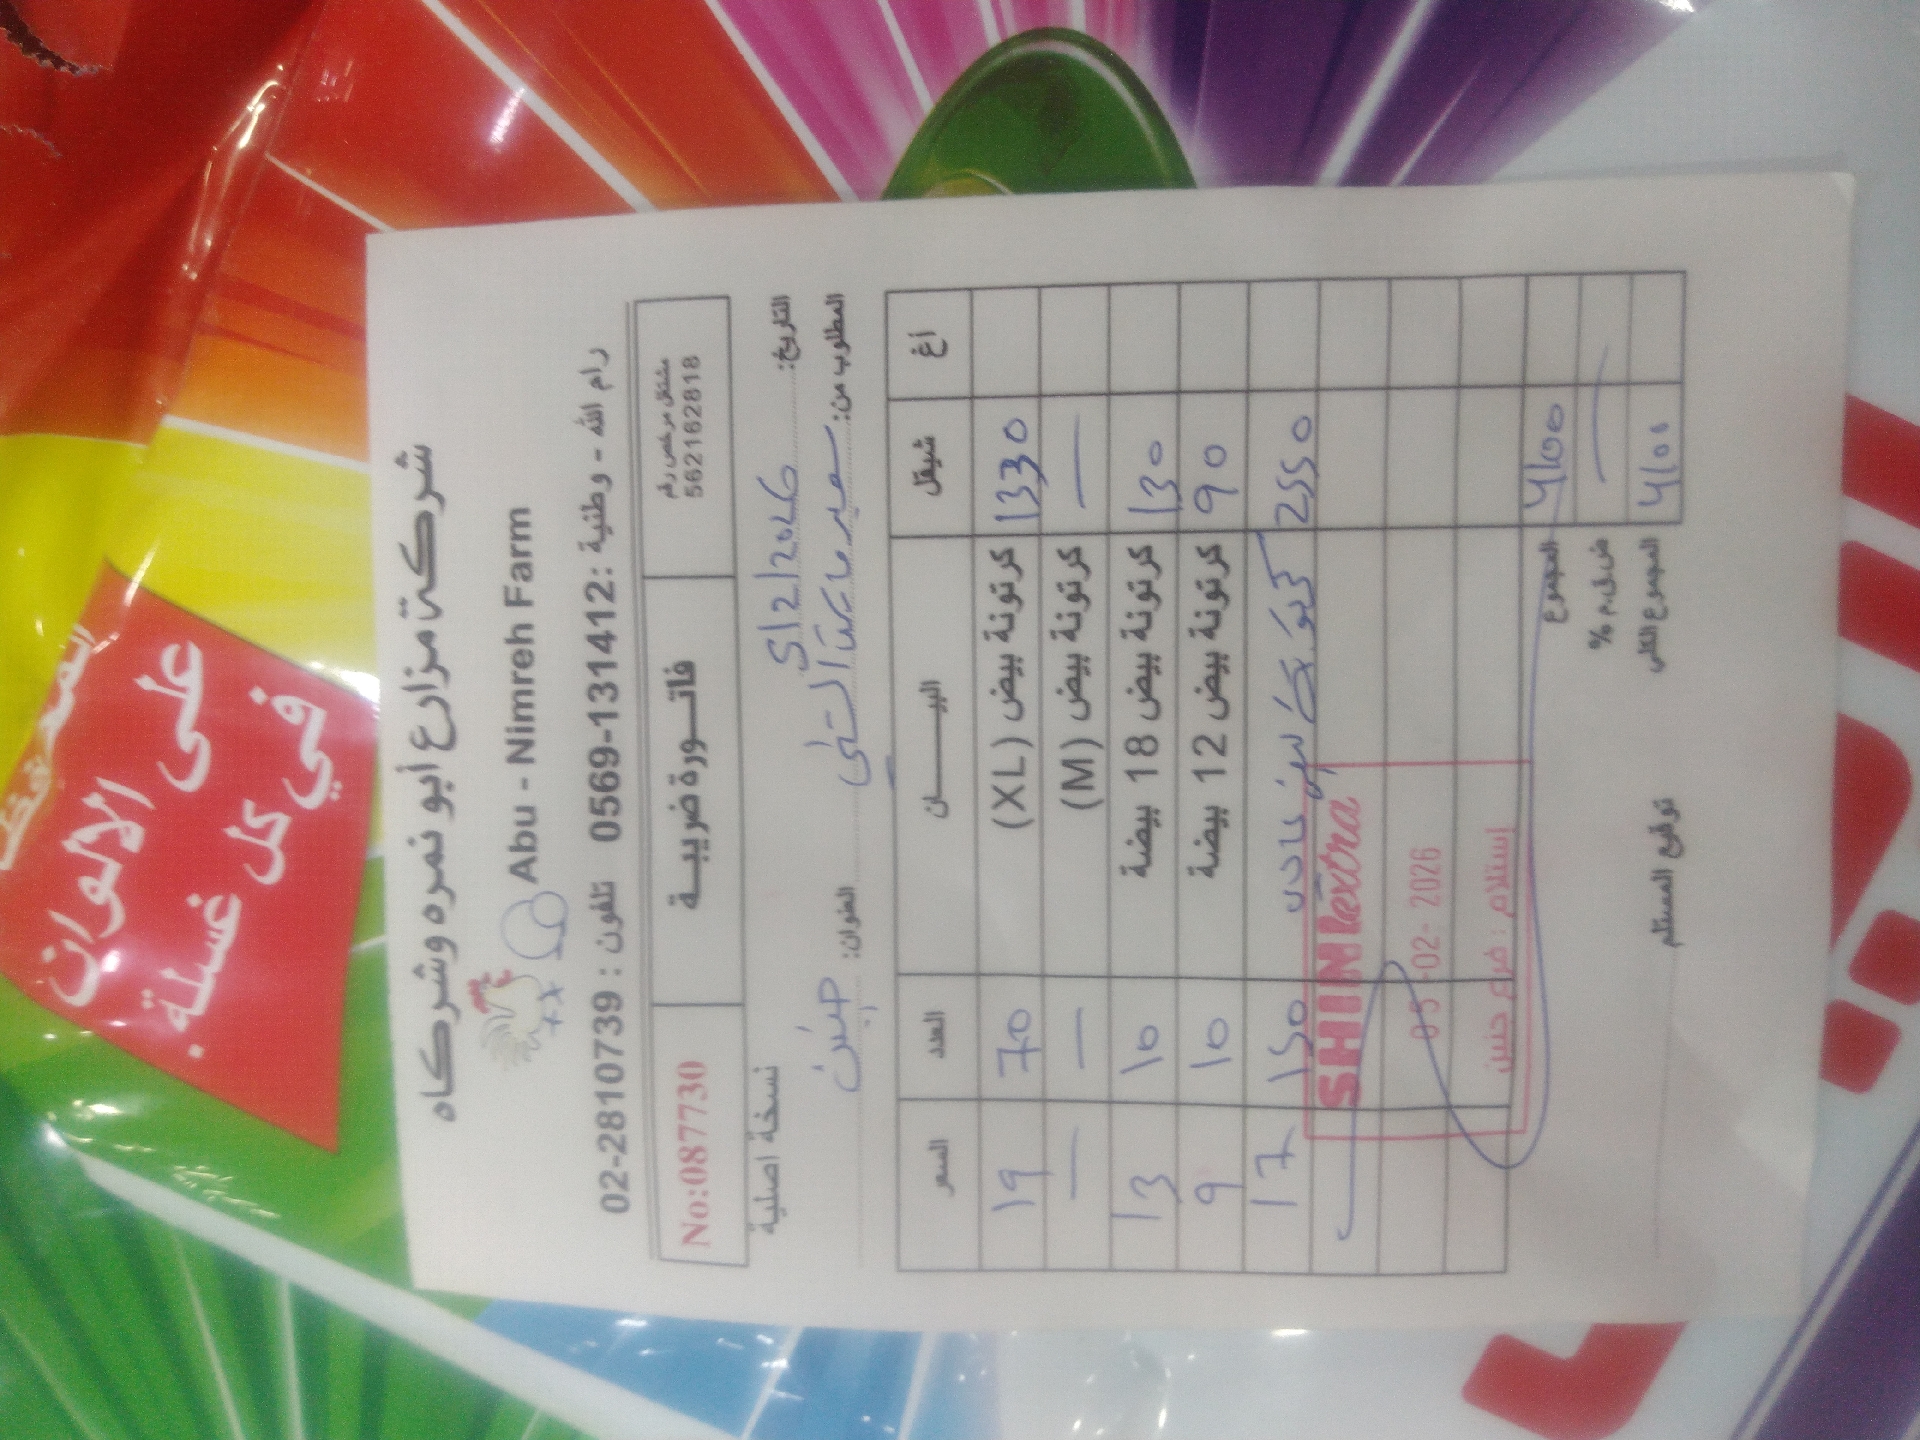 شركة مزارع أبو نمره وشركاه
Abu - Nimreh Farm
02-2810739 : تلفون 0569-131412: رام الله - وطنية
مشتغل مرخص رقم
562162818
فاتورة ضريبية
No:087730
نسخة اصلية
التاريخ: 5/2/2026
المطلوب من: العنوان: جنين
السعر العدد البيان شيقل أغ
19 70 كرتونة بيض (XL) 1330
— — كرتونة بيض (M) —
13 10 كرتونة بيض 18 بيضة 130
9 10 كرتونة بيض 12 بيضة 90
17 150 2550
المجموع 4100
ض.ق.م % —
المجموع الكلي 4100
SHINI extra
05-02-2026
إستلام : فرع جنين
توقيع المستلم
على الالوان
في كل غسلة.